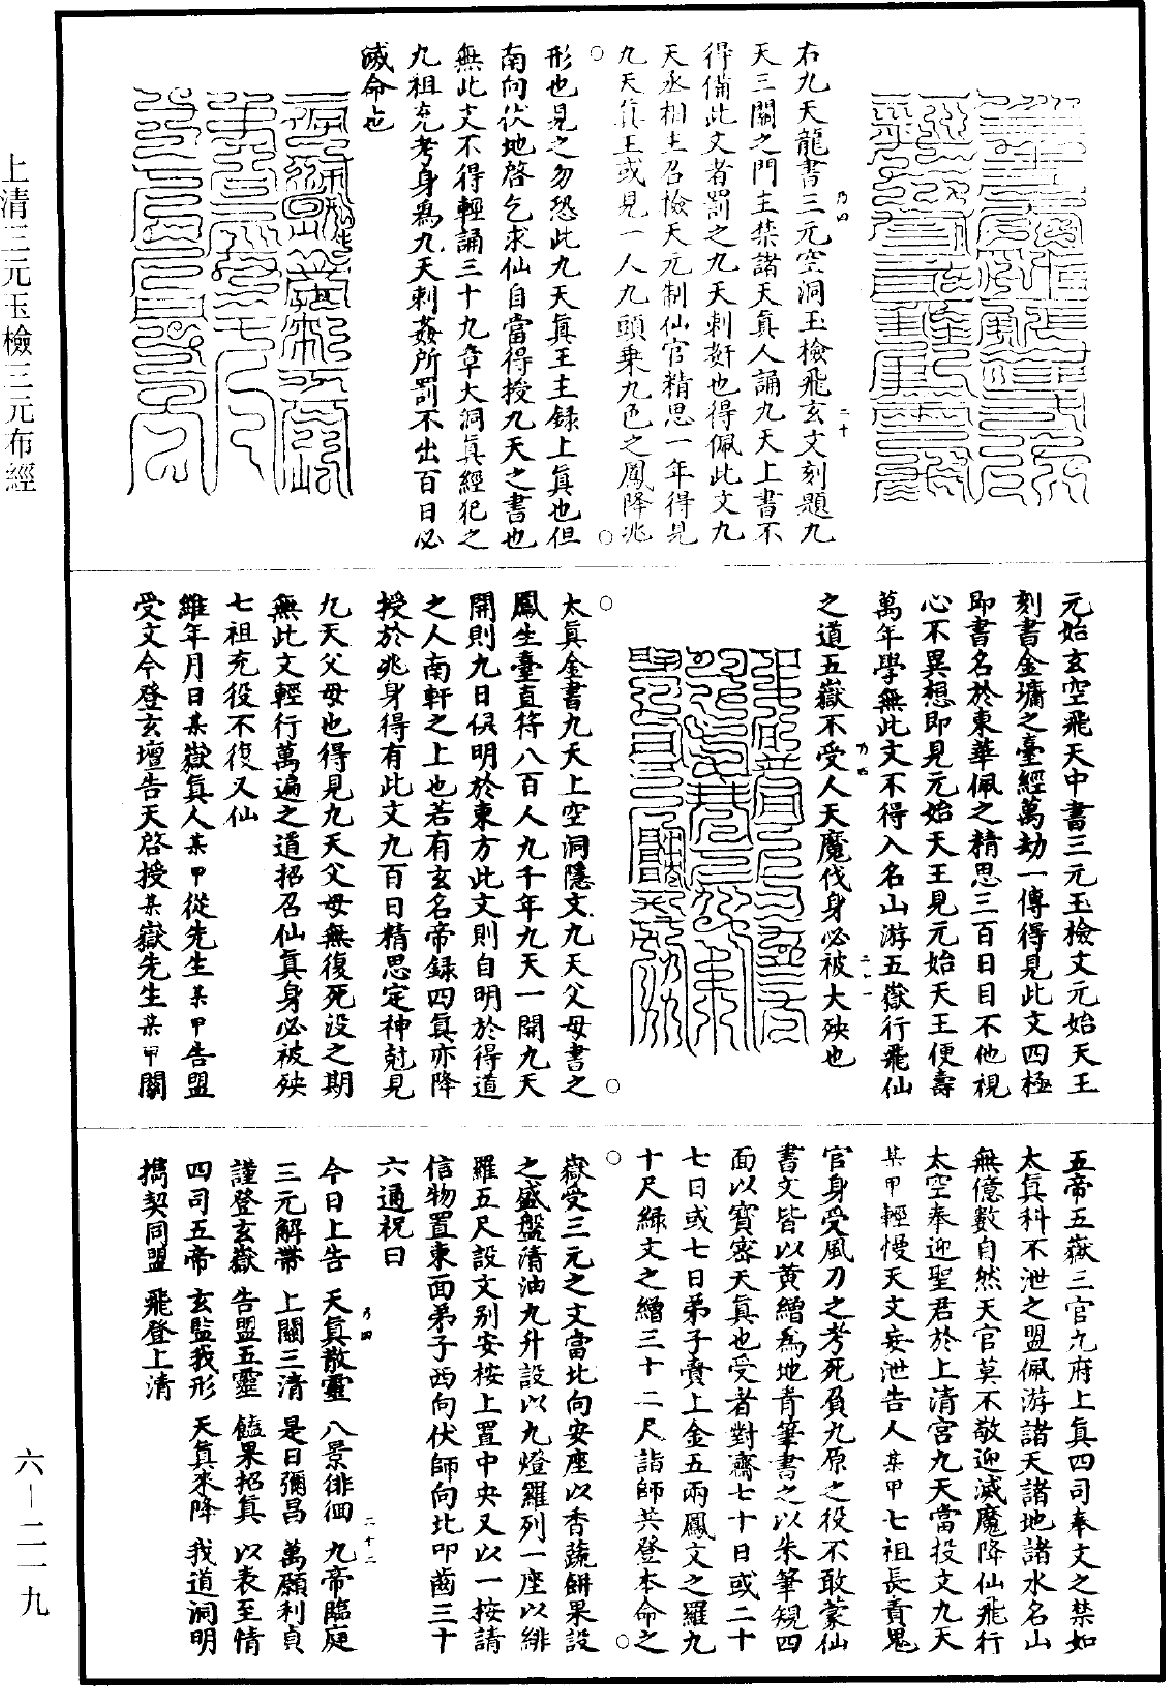 上清三元玉檢三元布經
六—二一九
右九天龍書三元空洞玉檢飛玄文刻題九
天三關之門主禁諸天真人誦九天上書不
得備此文者罰之九天刺姧也得佩此文九
天丞相主召檢天元制仙官精思一年得見
九天真王或見一人九頭乗九色之鳳降兆
形也見之勿恐此九天真王主録上真也但
南向伏地啓乞求仙自當得授九天之書也
無此文不得輕誦三十九章大洞真經犯之
九祖充考身爲九天刺姦所罰不出百日必
滅命也
乃四
二十
元始玄空飛天中書三元玉檢文元始天王
刻書金墉之臺經萬劫一傳得見此文四極
即書名於東華佩之精思三百日目不他視
心不異想即見元始天王見元始天王便壽
萬年學無此文不得入名山游五嶽行飛仙
之道五嶽不受人天魔伐身必被大殃也
乃四
二十一
太真金書九天上空洞隱文九天父母書之
鳳生臺直符八百人九千年九天一開九天
開則九日俱明於東方此文則自明於得道
之人南軒之上也若有玄名帝録四真亦降
授於兆身得有此文九百日精思定神尅見
九天父母也得見九天父母無復死没之期
無此文輕行萬遍之道招召仙真身必被殃
七祖充役不復又仙
維年月日某嶽真人某甲從先生某甲告盟
受文今登玄壇告天啓授某嶽先生某甲關
五帝五嶽三官九府上真四司奉文之禁如
太真科不泄之盟佩游諸天諸地諸水名山
無億數自然天官莫不敬迎滅魔降仙飛行
太空奉迎聖君於上清宮九天當投文九天
某甲輕慢天文妄泄告人某甲七祖長責鬼
官身受風刀之考死負九原之役不敢蒙仙
書文皆以黄繒爲地青筆書之以朱筆規四
面以寶密天真也受者對齋七十日或二十
七日或七日弟子賫上金五兩鳳文之羅九
十尺緑文之繒三十二尺詣師共登本命之
嶽受三元之文當北向安座以香蔬餅果設
之盛盤清油九升設以九燈羅列一座以緋
羅五尺設文别安按上置中央又以一按請
信物置東面弟子西向伏師向北叩齒三十
六通祝曰
今日上告　天真散靈　八景徘徊　九帝臨庭
三元解帶　上關三清　是日彌昌　萬願利貞
謹登玄嶽　告盟五靈　饈果招真　以表至情
四司五帝　玄監我形　天真來降　我道洞明
擕契同盟　飛登上清
乃四
二十二